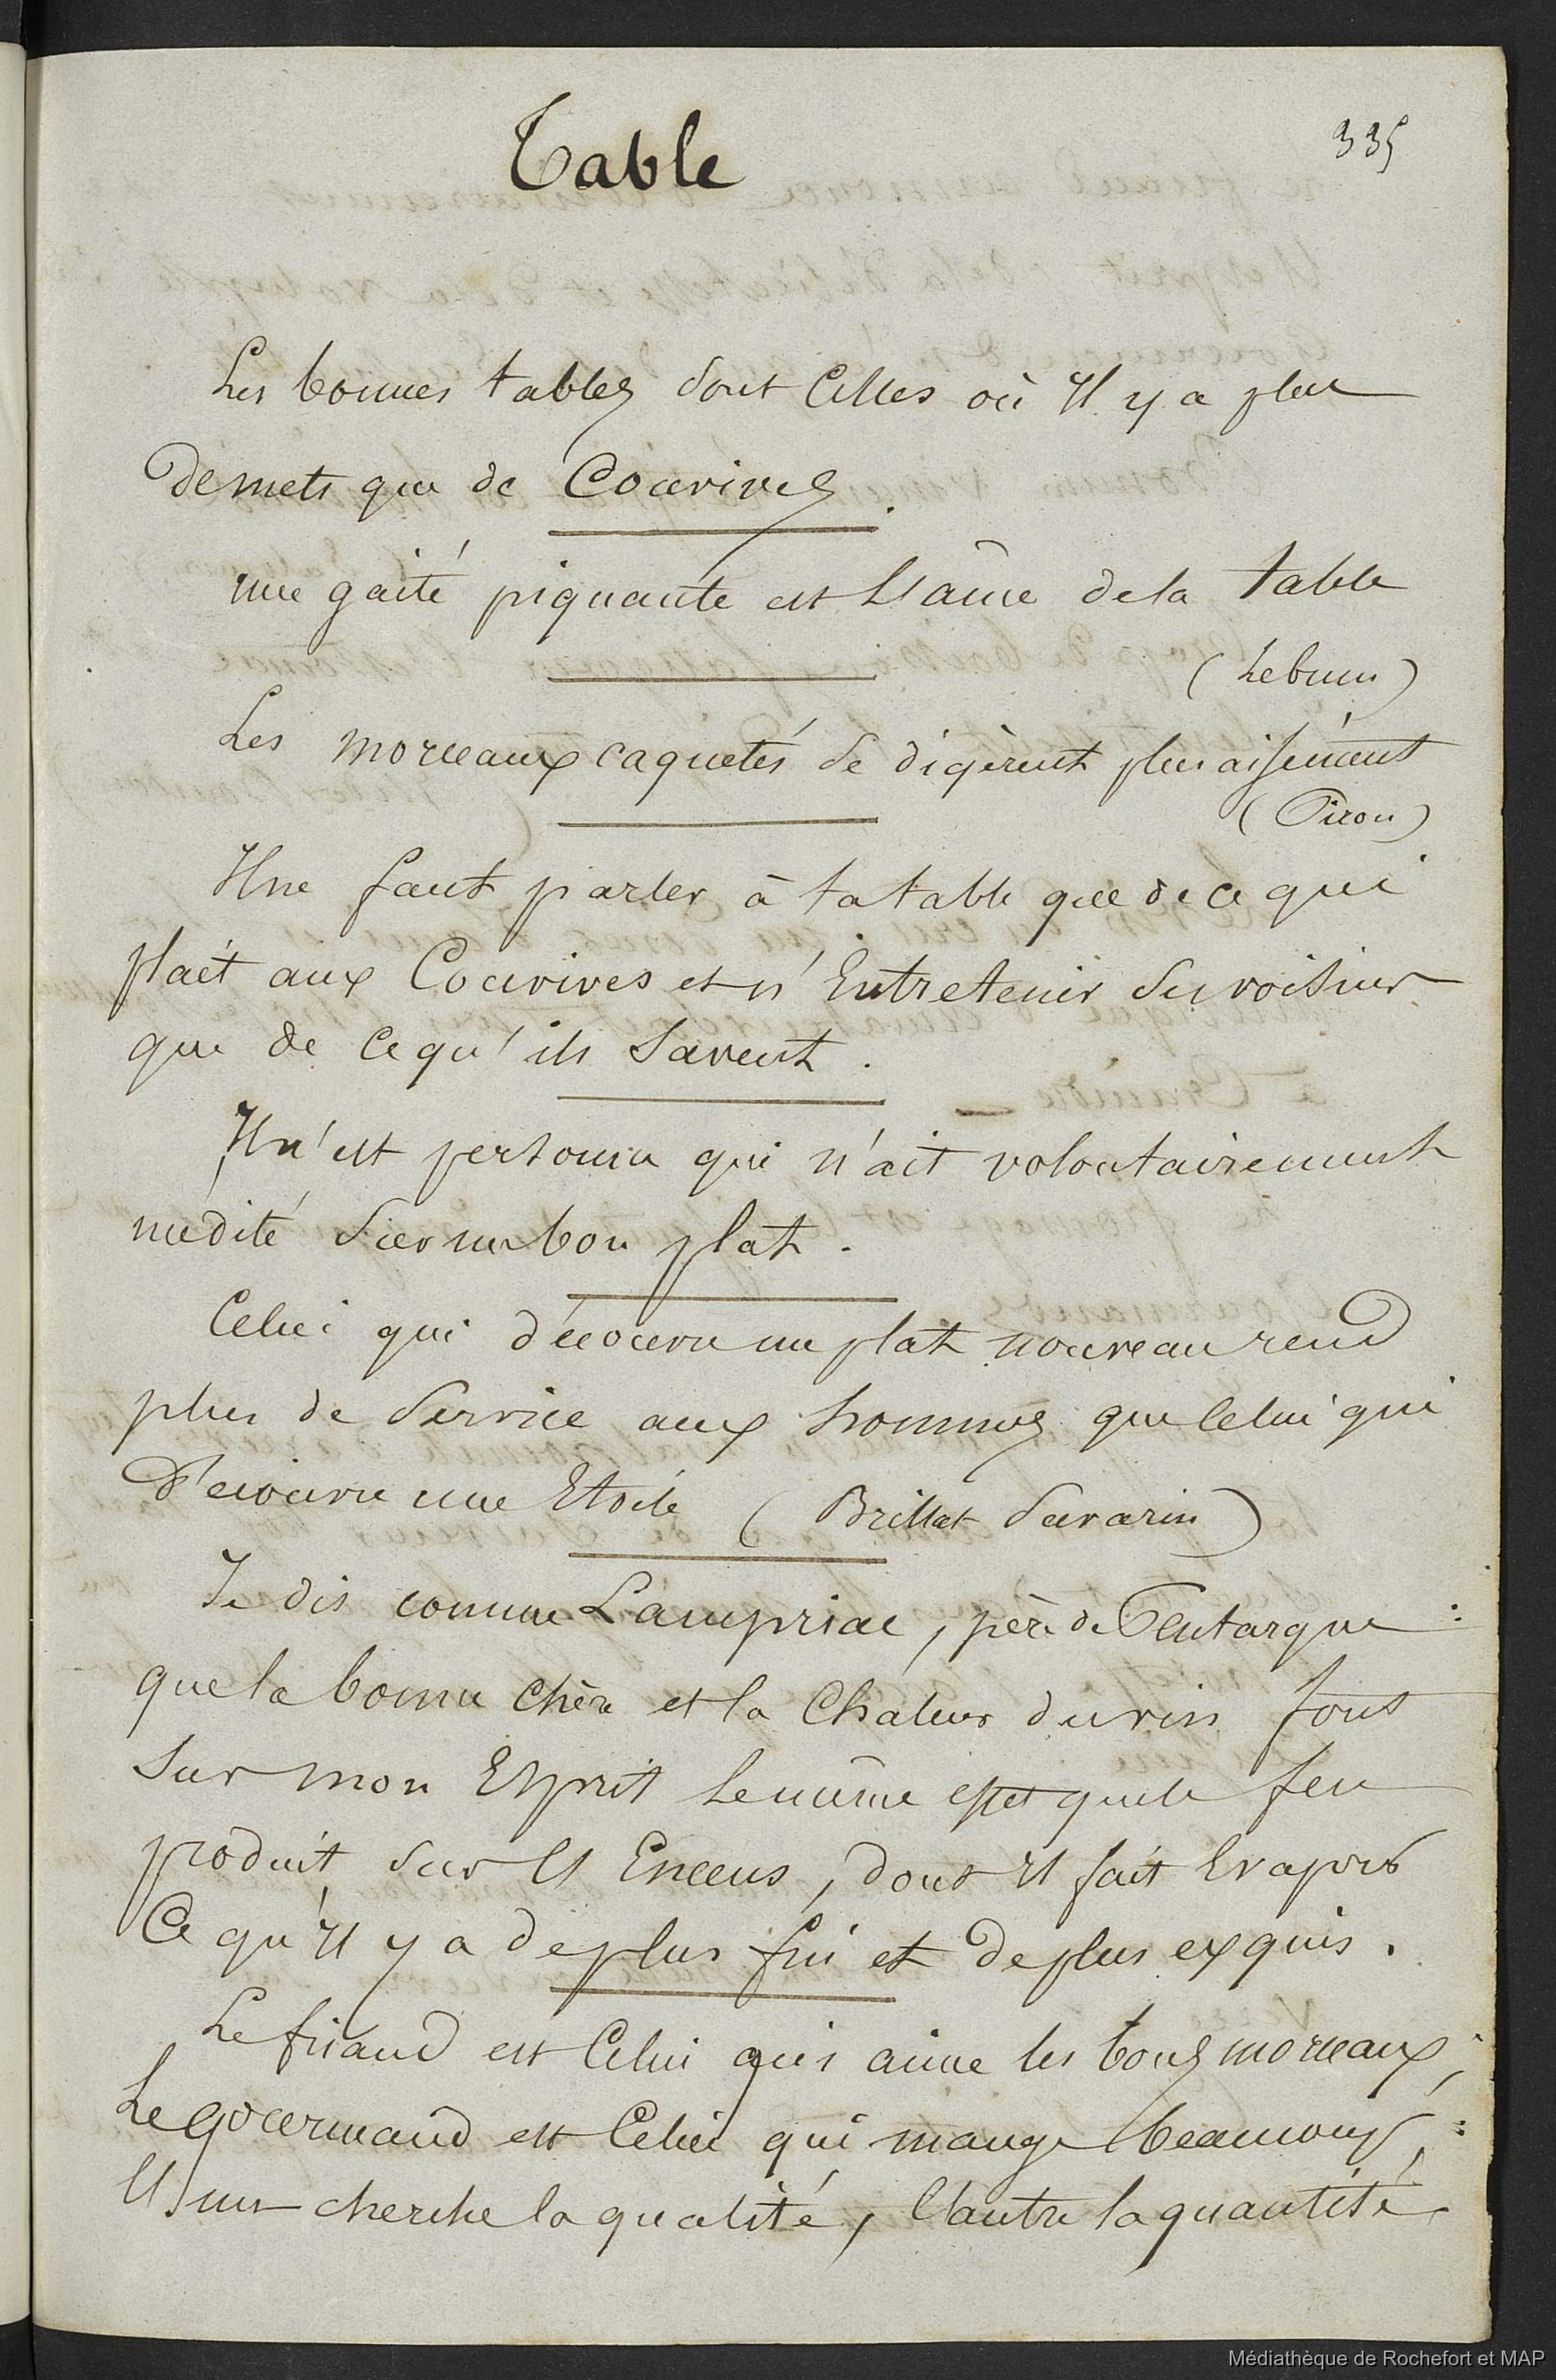 335
Table
Les bonnes tables sont celles où Il y a plus
de mets que de Convives.
une gaité piquante est L'âme de la table
(Lebrun)
Les morceaux caquetés se digèrent plus aisément
(Piron)
Il ne faut parler à ta table que de ce qui
plaît aux Convives et n'Entretenir ses voisins
que de ce qu'ils savent.
Il n'est personne qui n'ait volontairement
médité sur un bon plat.
Celui qui découvre un plat nouveau rend
plus de service aux hommes que celui qui
découvre une Etoile (Brillat Savarin)
Je dis comme Lampriac, père de Plutarque :
que la bonne chère et la Chaleur du vin font
sur mon Esprit le même effet que le feu
produit sur l'Encens, dont il fait Evaporer
Ce qu'Il y a de plus fin et de plus exquis.
Le friand est Celui qui aime les bons morceaux,
Le gourmand est Celui qui mange beaucoup :
L'un cherche la qualité, l'autre la quantité.
Médiathèque de Rochefort et MAP